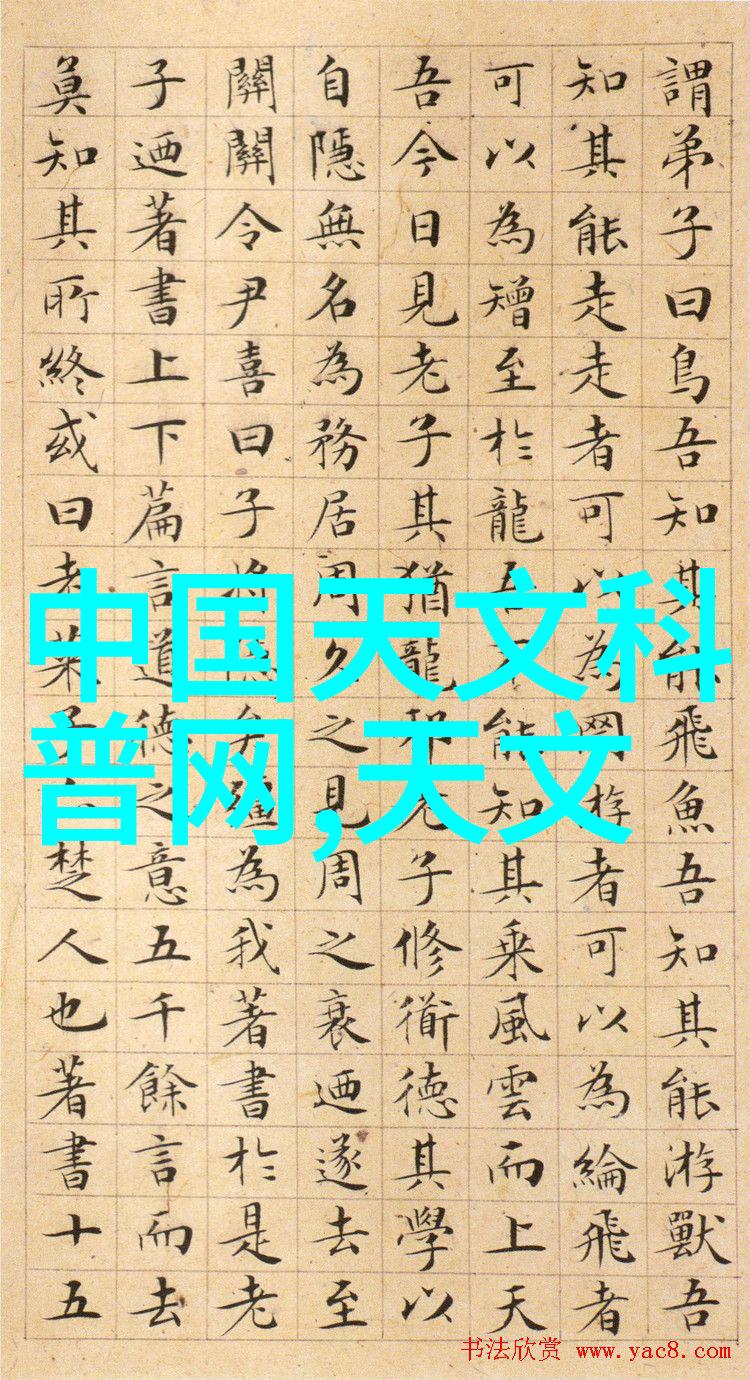 謂弟子曰鳥吾知其能飛魚吾知其能游獸吾
知其能走走者可以為網游者可以為綸飛者
可以為矰至於龍吾不能知其乘風雲而上天
吾今日見老子其猶龍邪老子修衟德其學以
自隱無名為務居周久之見周之衰迺遂去至
關關令尹喜曰子將隱矣彊為我著書於是老
子迺著書上下篇言道德之意五千餘言而去
莫知其所終或曰老萊子亦楚人也著書十五
中国天文科
普网,天文
书法欣赏 www.yac8.com